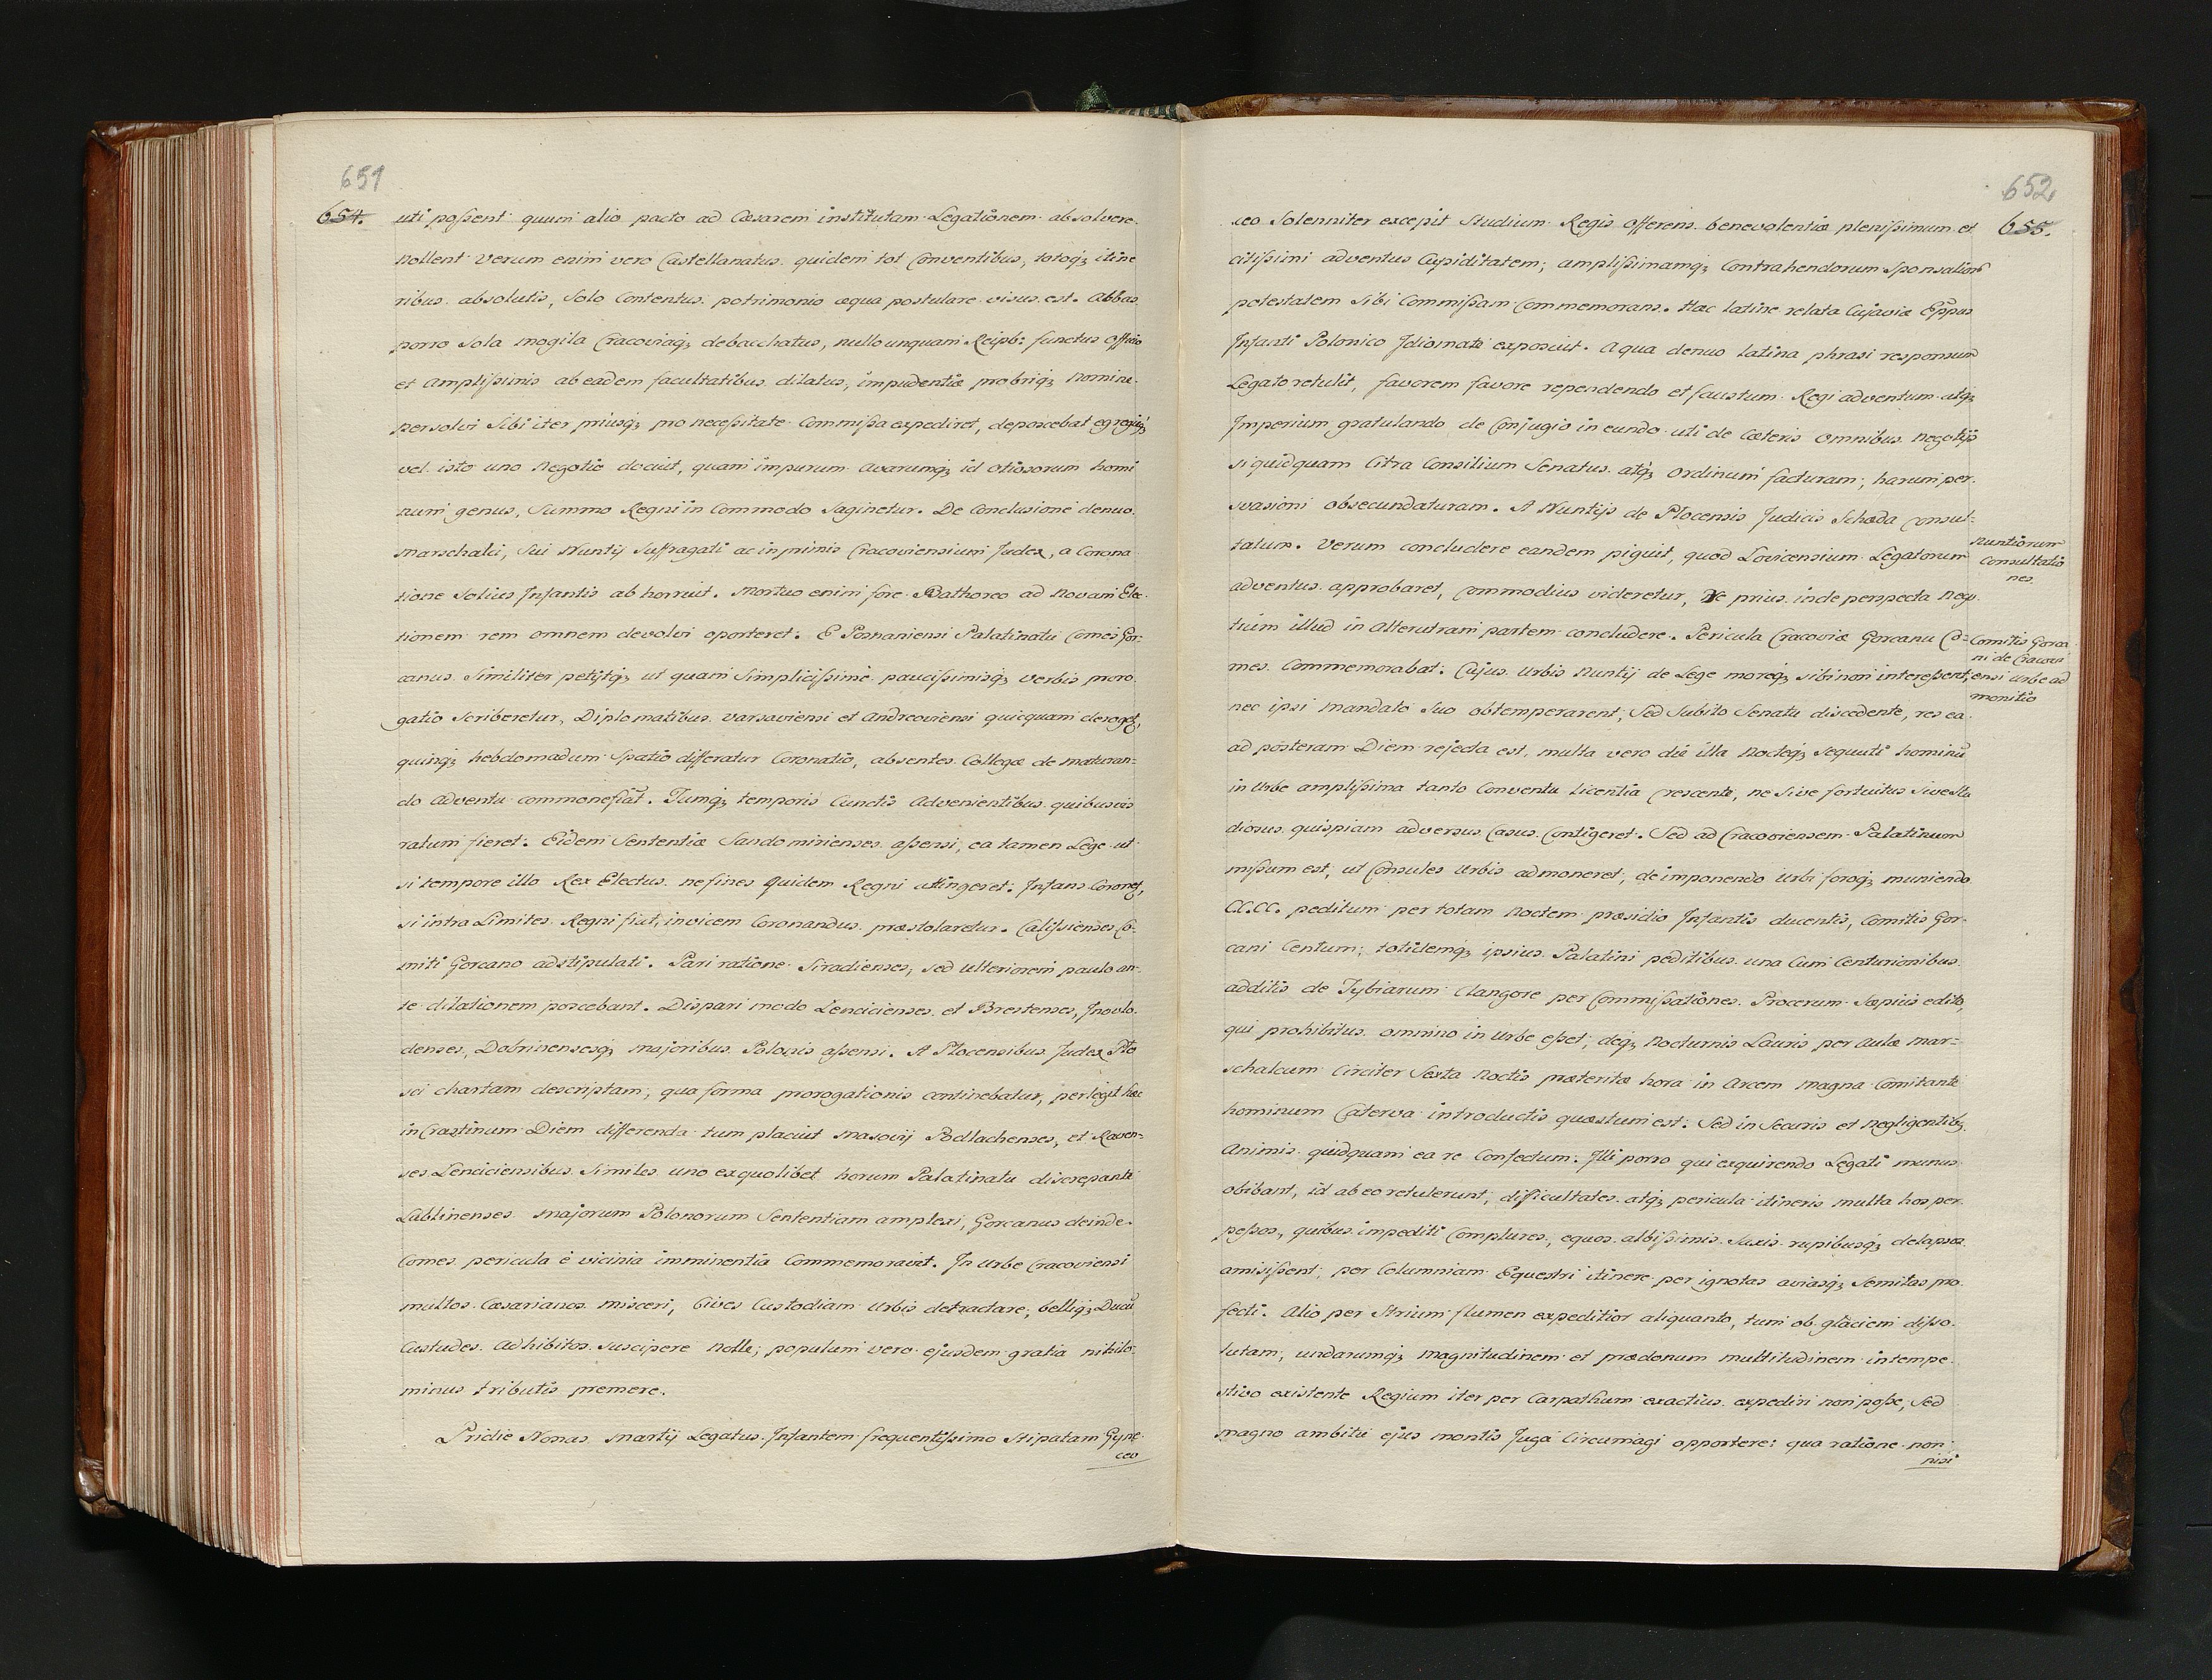 651
654.
uti possent quum alio pacto ad Cæsarem institutam Legationem absolvere
nollent verum enim vero Castellanatus quidem tot Conventibus, totoq; itine
ribus absolutis, solo Contentus potrimonio æqua postulare visus est. Abbas
porro sola mogila Cracoviaq; debacchatus, nullo unquam Reipb: functus officio
et amplissimis ab eadem facultatibus ditatus, impudentiæ probriq; nomine
persolvi sibi iter priusq; pro necessitate Commissa expediret, deposcebat egregieq;
vel isto uno negotio docuit, quam impurum avarumq; id otiosorum homi
num genus, summo Regni in Commodo saginetur. De Conclusione denuo
Marschalci, sui Nuntij suffragati ac inprimis Cracoviensium Judex, a Corona
tione solius Infantis abhorruit. Mortuo enim fore Bathoreo ad Novam Elec
tionem rem omnem devolvi oporteret. E Posnaniensi Palatinatu Comes Gor:
canus similiter petijtq; ut quam simplicissime paucissimisq; verbis proro
gatio scriberetur, Diplomatibus varsaviensi et andreoviensi quicquam deroget,
quinq; hebdomadum spatio differatur Coronatio, absentes Collegæ de maturan=
do adventu commonefiat. Tumq; temporis Cunctis advenientibus quibusvis
ratum fieret. Eidem Sententiæ Sandomirienses assensi, ea tamen Lege ut
si tempore illo Rex Electus ne fines quidem Regni attingeret: Infans Coronet,
si intra Limites Regni fiat, invicem Coronandus præstolaretur. Calissienses Co-
miti Gorcano adstipulati. Pari ratione Siradienses, sed ulteriorem paulo an-
te dilationem poscebant. Dispari modo Lencicienses et Brestenses, Inovlo
denses, Dobrinensesq; majoribus Polonis assensi. A Plocensibus Judex Plo
sci chartam descriptam, qua forma prorogationis continebatur, perlegit hæc
in Crastinum Diem differenda tum placuit Masovij Podlachenses, et Raven=
ses Lenciciensibus similes uno exquolibet horum Palatinatu discrepante
Lablinenses majorum Polonorum Sententiam amplexi, Gorcanus deinde
Comes pericula è vicinia imminentia Commemoravit. In urbe Cracoviensi
multos Cæsarianos misceri, Cives Custodiam urbis detractare, belliq; Ducū
Custudes adhibitos suscipere nolle; populum vero ejusdem gratia nihilo-
minus tributis premere.
Pridie Nonas Martij Legatus Infantem frequentissimo stipatam Gyne
ceo
652
655.
ceo Solenniter excepit Studium Regis offerens benevolentiæ plenissimum et
citissimi adventus Cupiditatem; amplissimamq; Contrahendorum Sponsalion
potestatem sibi Commissam Commemorans. Hæc latine relata Cujaviæ Eppus
Infanti Polonico Idiomate exposuit. A qua denuo latina phrasi responsum
Legato retulit, favorem favore rependendo et faustum Regi adventum atq;
Imperium gratulando de Conjugio in eundo uti de Cæteris omnibus negotijs
si quidquam Citra Consilium Senatus atq; ordinum facturam; harum per
svasioni obsecundaturam. A Nuntijs de Plocensis Judicis Scheda Consul=
tatum. Verum concludere eandem piguit, quod Lovicensium Legatorum
adventus approbaret, Commodius videretur, Re prius inde perspecta nego
tuim illud in Alterutram partem concludere. Pericula Cracoviæ Gorcanu Co=
mes Commemorabat: Cujus Urbis Nuntij de Lege moreq; sibi non interessent,
nec ipsi mandato suo obtemperarent, sed subito Senatu discedente, res ea
ad posteram Diem rejecta est. multa vero die illa nocteq; sequuti hominū
in Urbe amplissima tanto Conventu licentia crescente, ne sive fortuitus sive stu
diosus quispiam adversus Casus Contigeret. Sed ad Cracoviensem Palatinum
missum est, ut Consules Urbis admoneret, de imponendo Urbi foroq; muniendo
CC.CC. peditum per totam noctem præsidio Infantis ducentis, Comitis Gor-
cani Centum; totidemq; ipsius Palatini peditibus una Cum Centurionibus
additis de Tybiarum Clangore per Commissationes Procerum sæpius edito,
qui prohibitus ommino in Urbe esset; deq; nocturnis Lauris per aulæ Mar=
schalcum Circiter sexta noctis præterita hora in Arcem magna Comitante
hominum Caterva introductis quæstum est: Sed in securis et negligentib;
Animis quidquam ea re Confectum. Illi porro qui exquirendo Legati munus
obibant, id ab eo retulerunt, difficultates atq; pericula itineris multa hos per
pessos, quibus impediti Complures, equos albissimis saxis rupibusq; delapsos
amisissent; per Columniam Equestri itinere per ignotas aviasq; semitas pro
fecti. Alio per Strium flumen expeditior aliquanto, tum ob glaciem disso-
lutam, undarumq; magnitudinem et prædonum multitudinem intempe-
stivo existente Regium iter per Carpathum exactius expediri non posse, Sed
magno ambitu ejus montis Juga Circumagi opportere: qua ratione non
nisi
Nuntiorum
Consultatio
nes
Comitis Gorca
ni de Cracovi
ensi Urbe ad
monitio